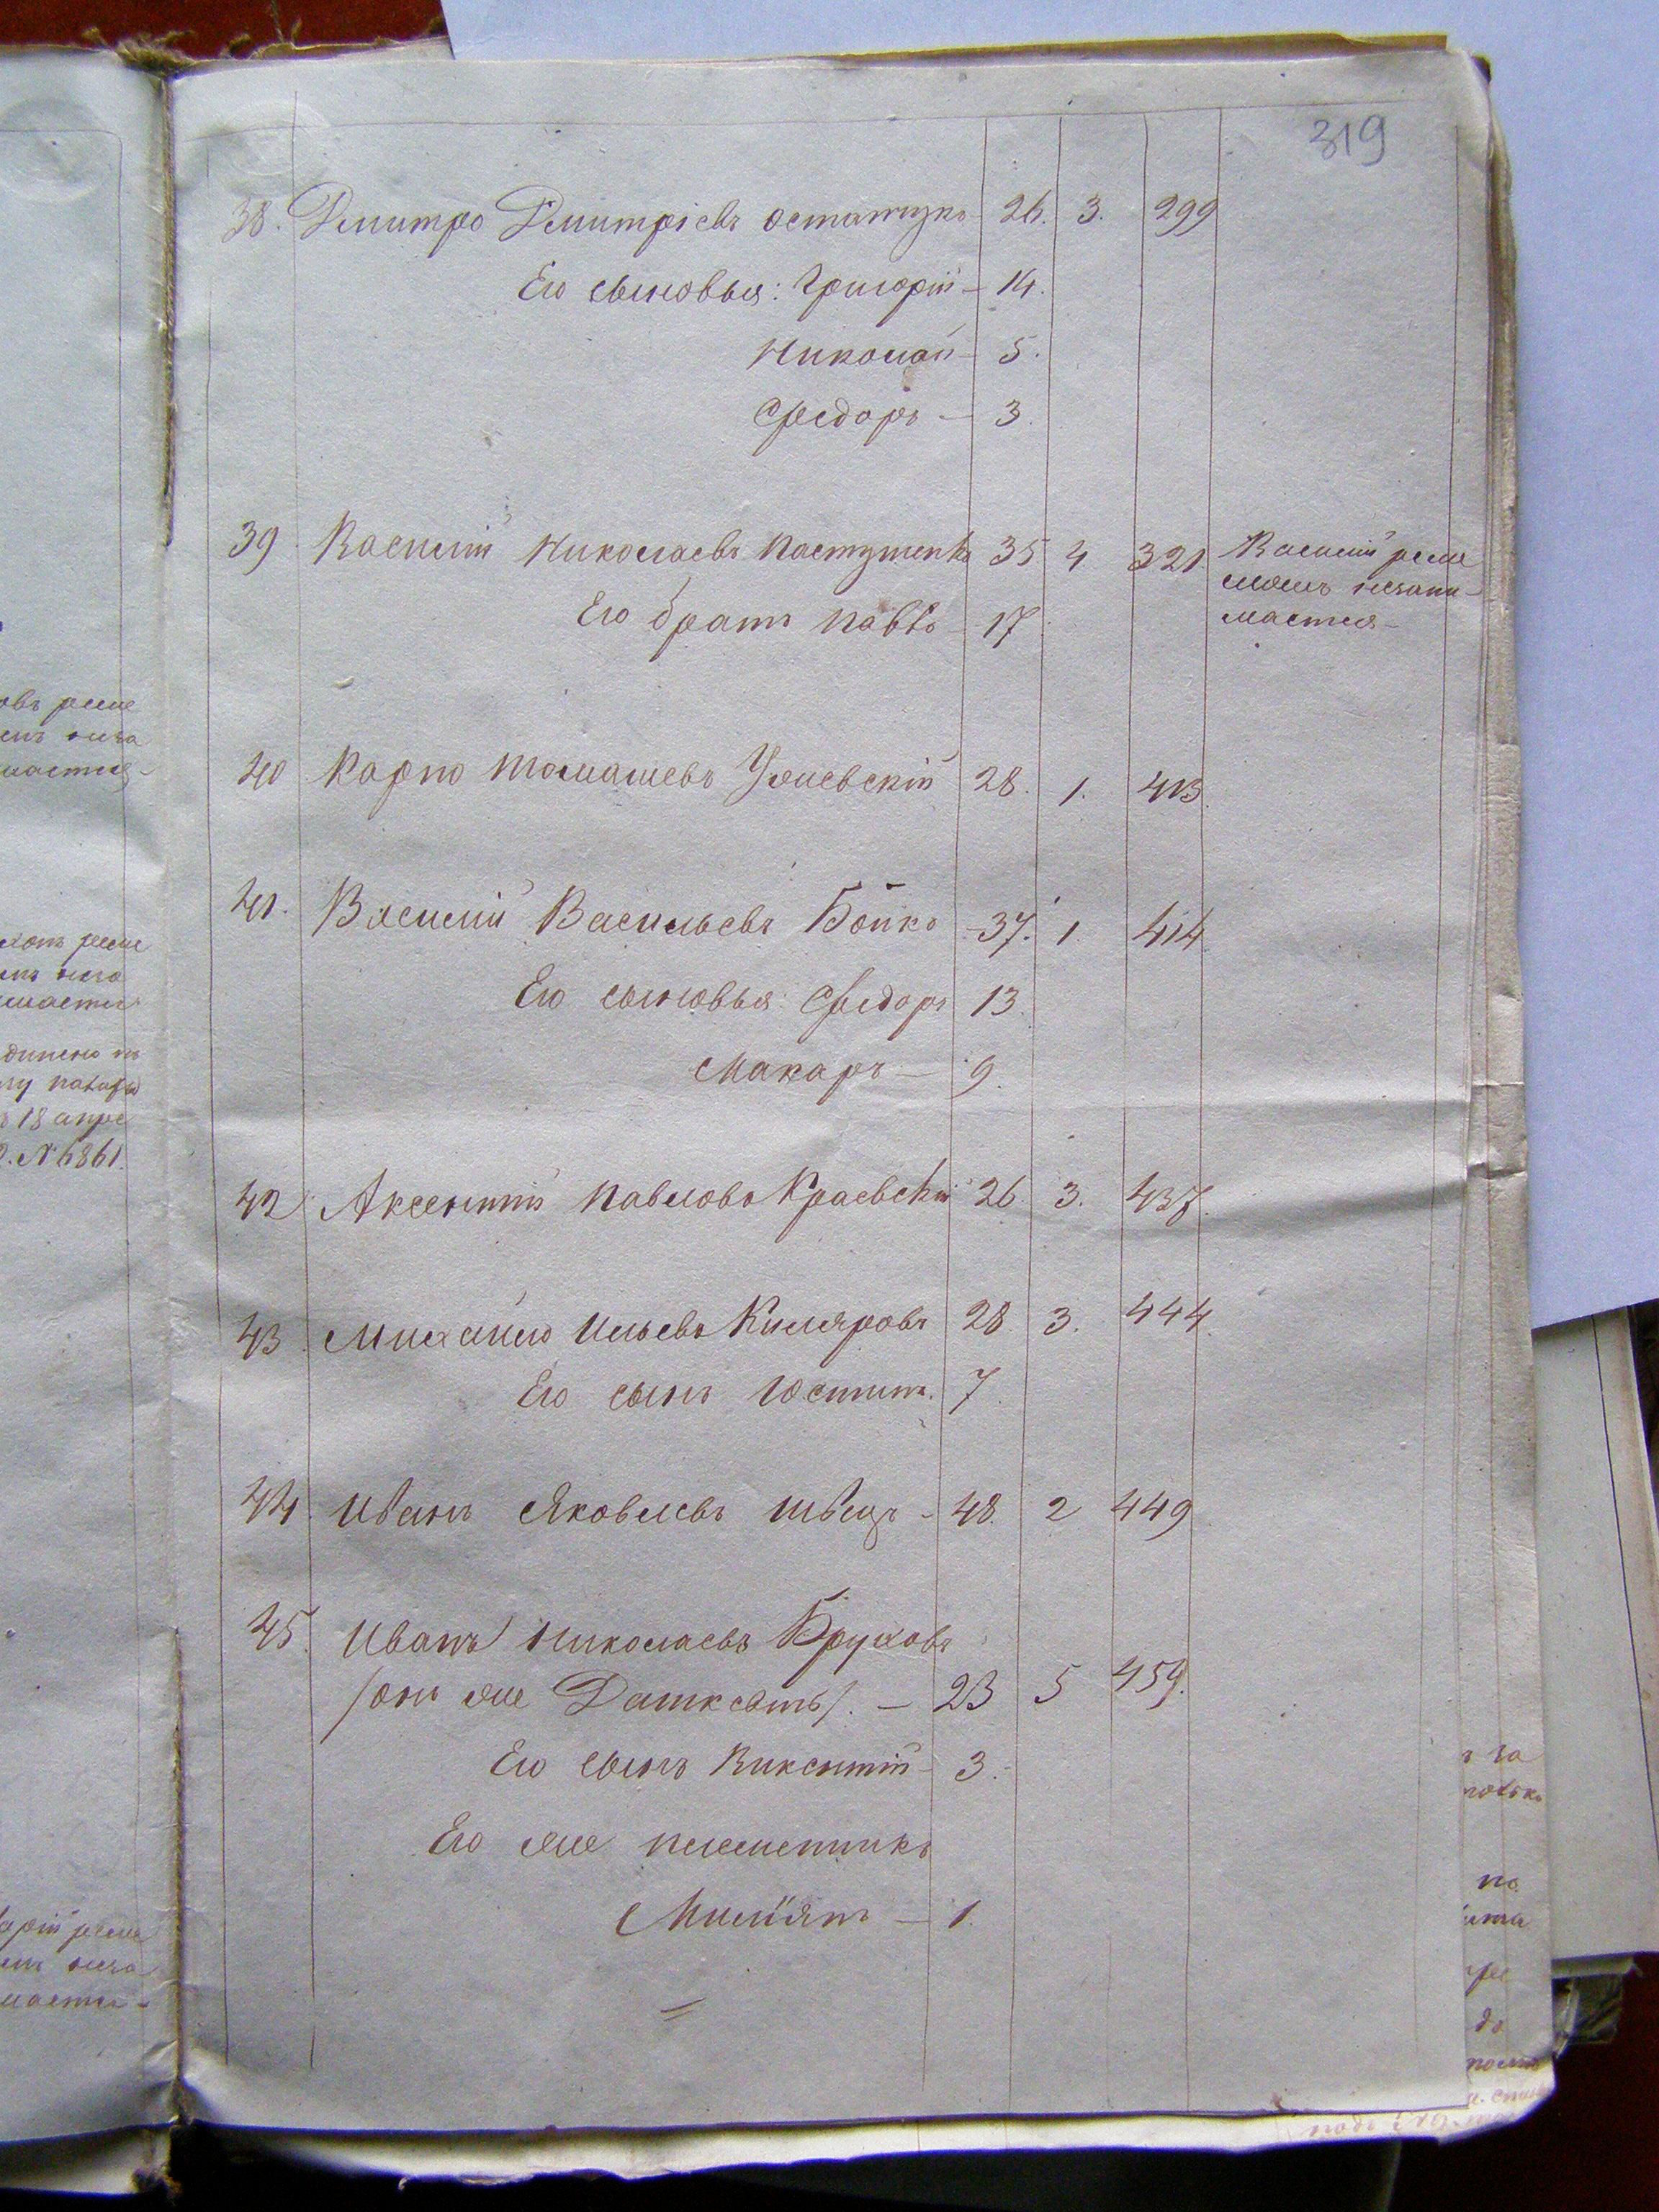 319
38. Дмитро Дмитріевъ Остапчукъ 26. 3. 299
Его сыновья: Григорій — 14.
Николай — 5.
Федоръ — 3.
39 Василій Николаевъ Пастушенко 35 4 321. Василій реме
сломъ незани-
мается
Его братъ Павло 17
40 Карпо Томашевъ 28. 1. 413.
41. Василій Васильевъ Бойко 37. 1. 414
Его сыновья: Федоръ 13
Макаръ — 9.
42 Аксентій Павловъ Краевскій 26 3. 437.
43 Михайло Ильевъ Киляровъ 28. 3. 444.
Его сынъ Юстинъ. 7
44. Иванъ Яковлевъ Швецъ - 48. 2 449
45. Иванъ Николаевъ Бруховъ
/онъ же /. — 23 5 459.
Его сынъ Викентій 3.
Его же племенникъ
— 1.
овъ реме
неза
мается
реме
неза
мается
18 апре
№ 6861.
реме
неза
за
по
до
подъ